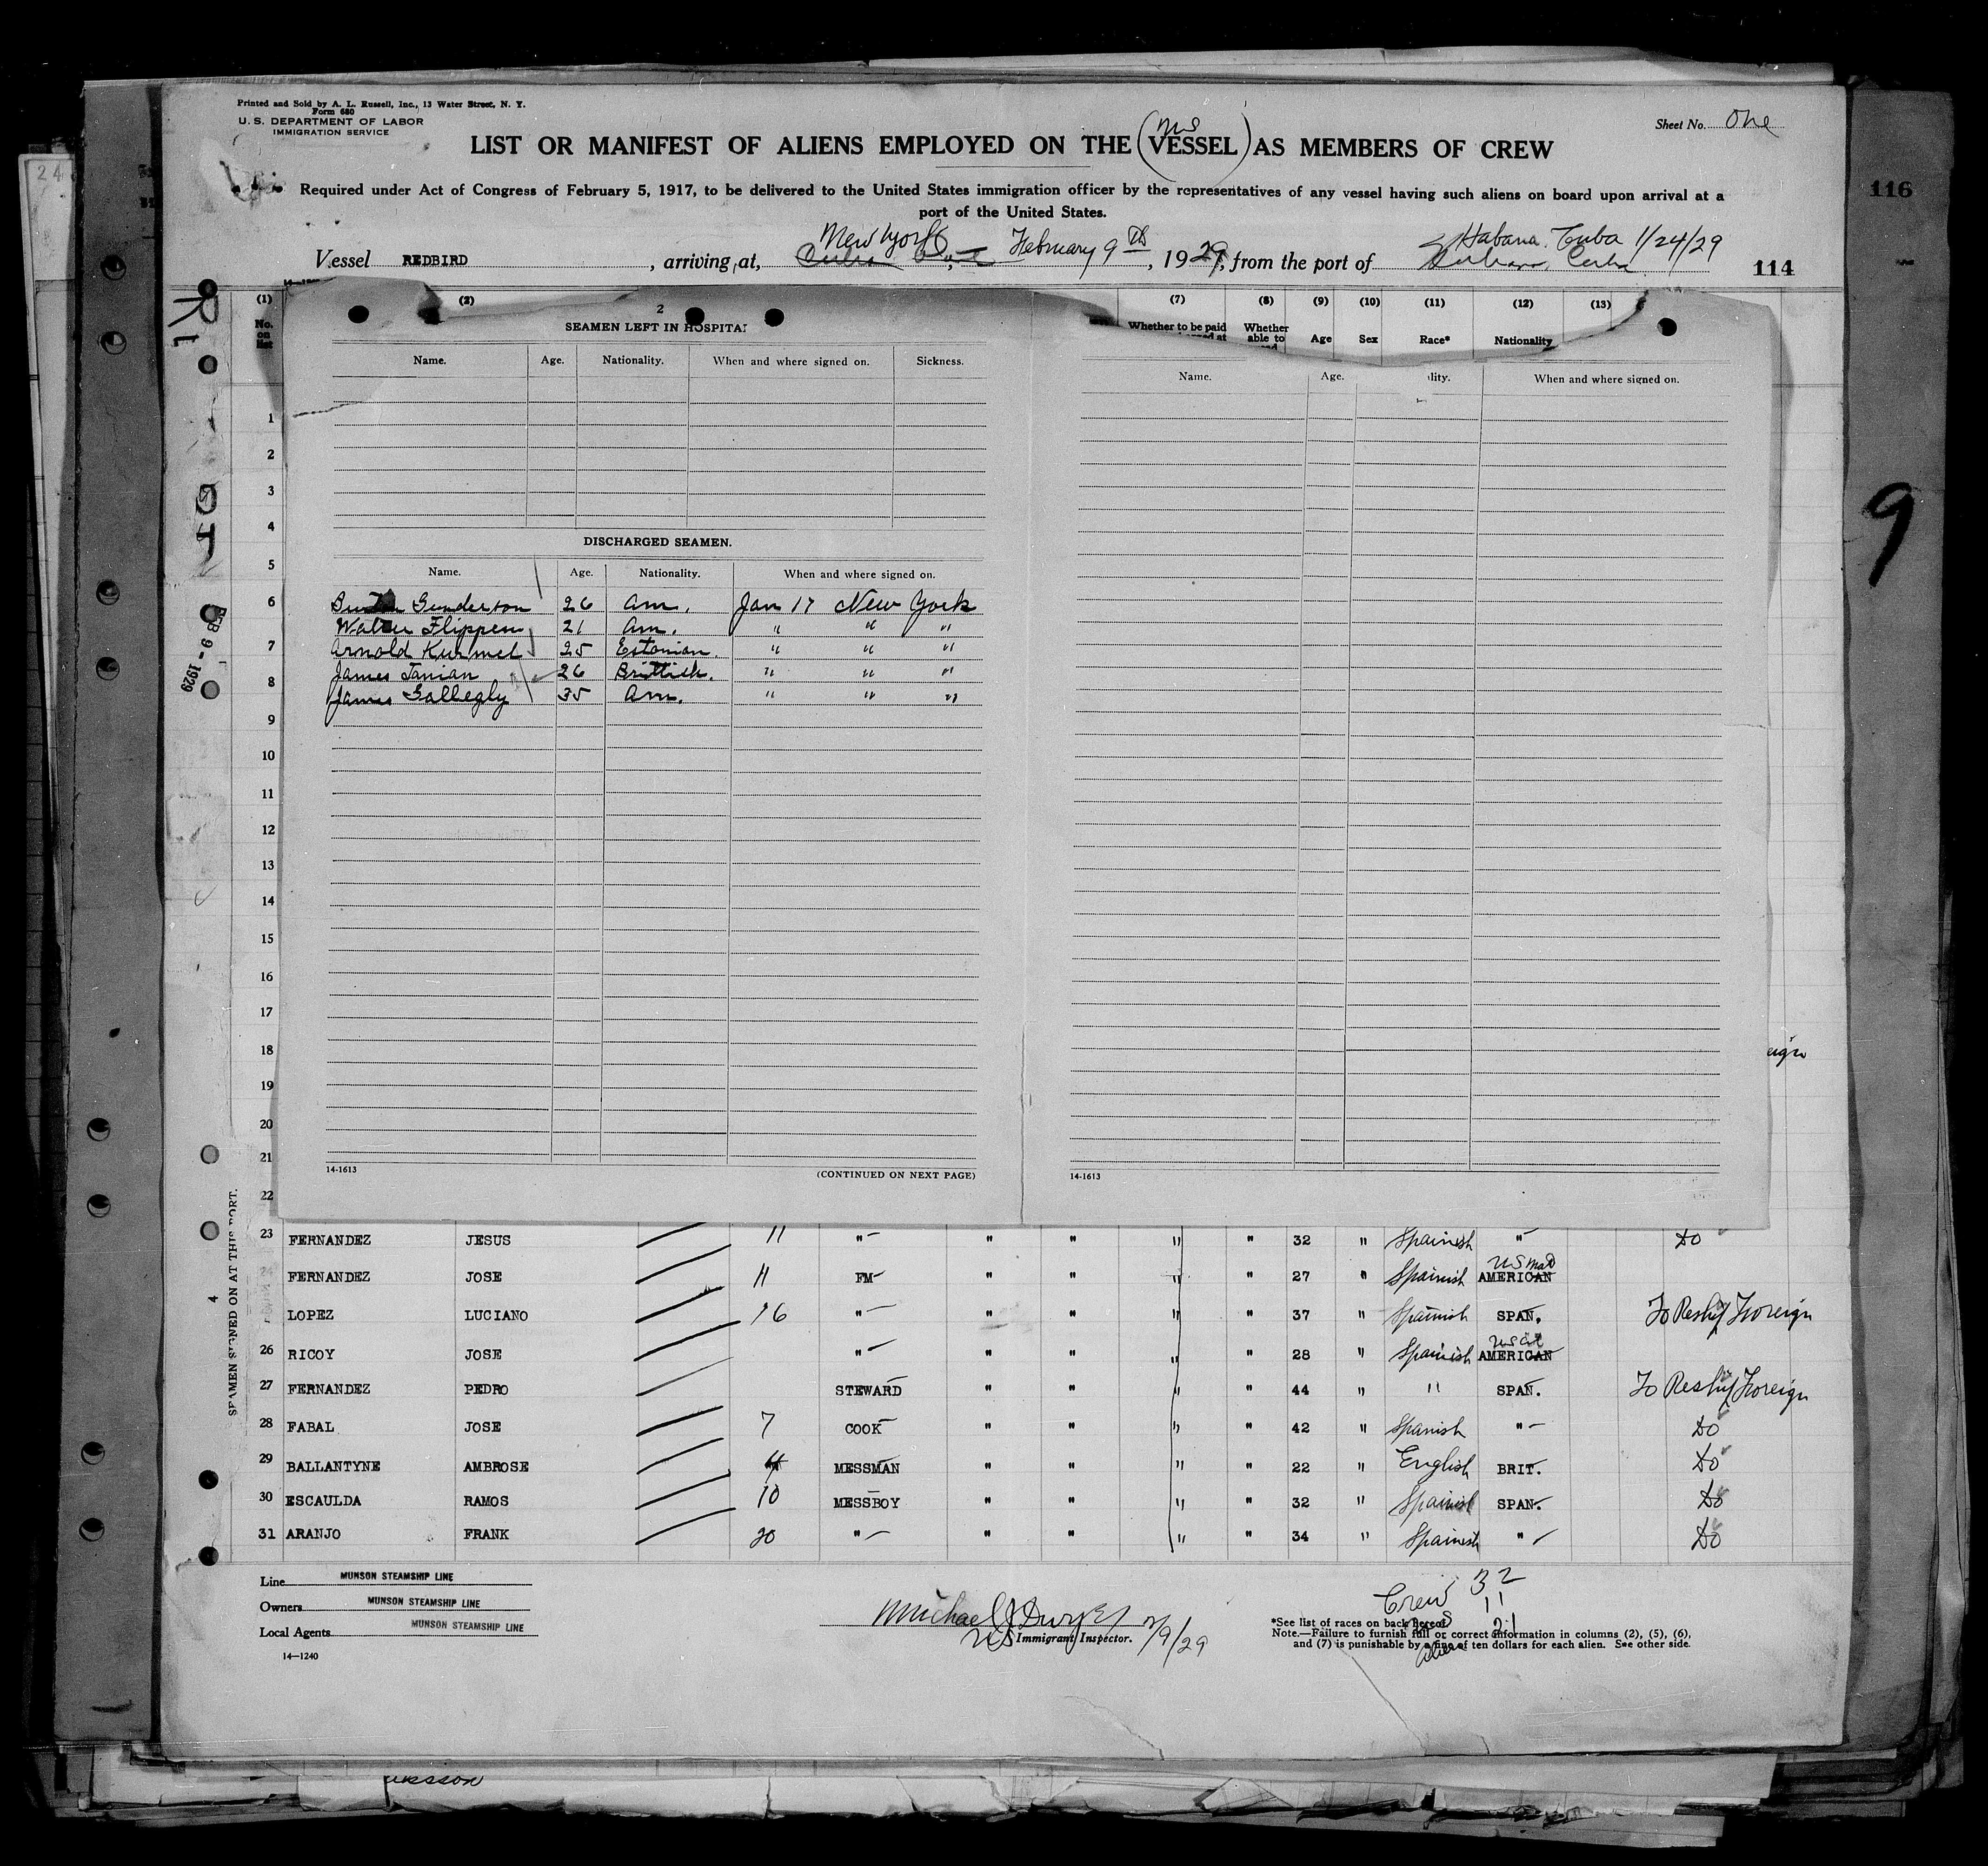 Printed and Sold by A. L. Russell, Inc., 13 Water Street, N. Y.
Form 680
U. S. DEPARTMENT OF LABOR
IMMIGRATION SERVICE
Sheet No. One
LIST OR MANIFEST OF ALIENS EMPLOYED ON THE (VESSEL) AS MEMBERS OF CREW
Required under Act of Congress of February 5, 1917, to be delivered to the United States immigration officer by the representatives of any vessel having such aliens on board upon arrival at a
port of the United States.
Vessel REDBIRD, arriving at, New York February 9th, 1929, from the port of Habana, Cuba 1/24/29
114
116
9
(1) (2) (7) (8) (9) (10) (11) (12) (13)
No. on list Whether to be paid Whether able to Age Sex Race* Nationality
2
SEAMEN LEFT IN HOSPITAL
Name. Age. Nationality. When and where signed on. Sickness.
Name. Age. lity. When and where signed on.
DISCHARGED SEAMEN.
Name. Age. Nationality. When and where signed on.
Gunderson 26 Am. Jan 17 New York
Walter Flippen 21 Am. " " "
Arnold Kurmel 25 Estonian. " " "
James Tanian 26 Brittish. " " "
James Gallegly 35 Am. " " "
14-1613 (CONTINUED ON NEXT PAGE)
14-1613
1
2
3
4
5
6
7
8
9
10
11
12
13
14
15
16
17
18
19
20
21
22
FEB 9 - 1929
SEAMEN SIGNED ON AT THIS PORT.
4
eign
23 FERNANDEZ JESUS 11 "- " " " " 32 " Spainish " Do
FERNANDEZ JOSE 11 FM " " " " 27 " Spainish AMERICAN
LOPEZ LUCIANO 16 " " " " " 37 " Spainish SPAN. To Reship Foreign
26 RICOY JOSE " " " " " 28 " Spainish US Cit AMERICAN
27 FERNANDEZ PEDRO STEWARD " " " " 44 " " SPAN. To Reship Foreign
28 FABAL JOSE 7 COOK " " " " 42 " Spanish " Do
29 BALLANTYNE AMBROSE 4 MESSMAN " " " " 22 " English BRIT. Do
30 ESCAULDA RAMOS 10 MESSBOY " " " " 32 " Spainish SPAN. Do
31 ARANJO FRANK 20 " " " " " 34 " Spainish " Do
Line MUNSON STEAMSHIP LINE
Owners MUNSON STEAMSHIP LINE
Local Agents MUNSON STEAMSHIP LINE
14—1240
Michael J Dwyer 2/9/29
US Immigrant Inspector.
Crew 32
11
21
*See list of races on back hereof.
Note.—Failure to furnish full or correct information in columns (2), (5), (6),
and (7) is punishable by a fine of ten dollars for each alien. See other side.